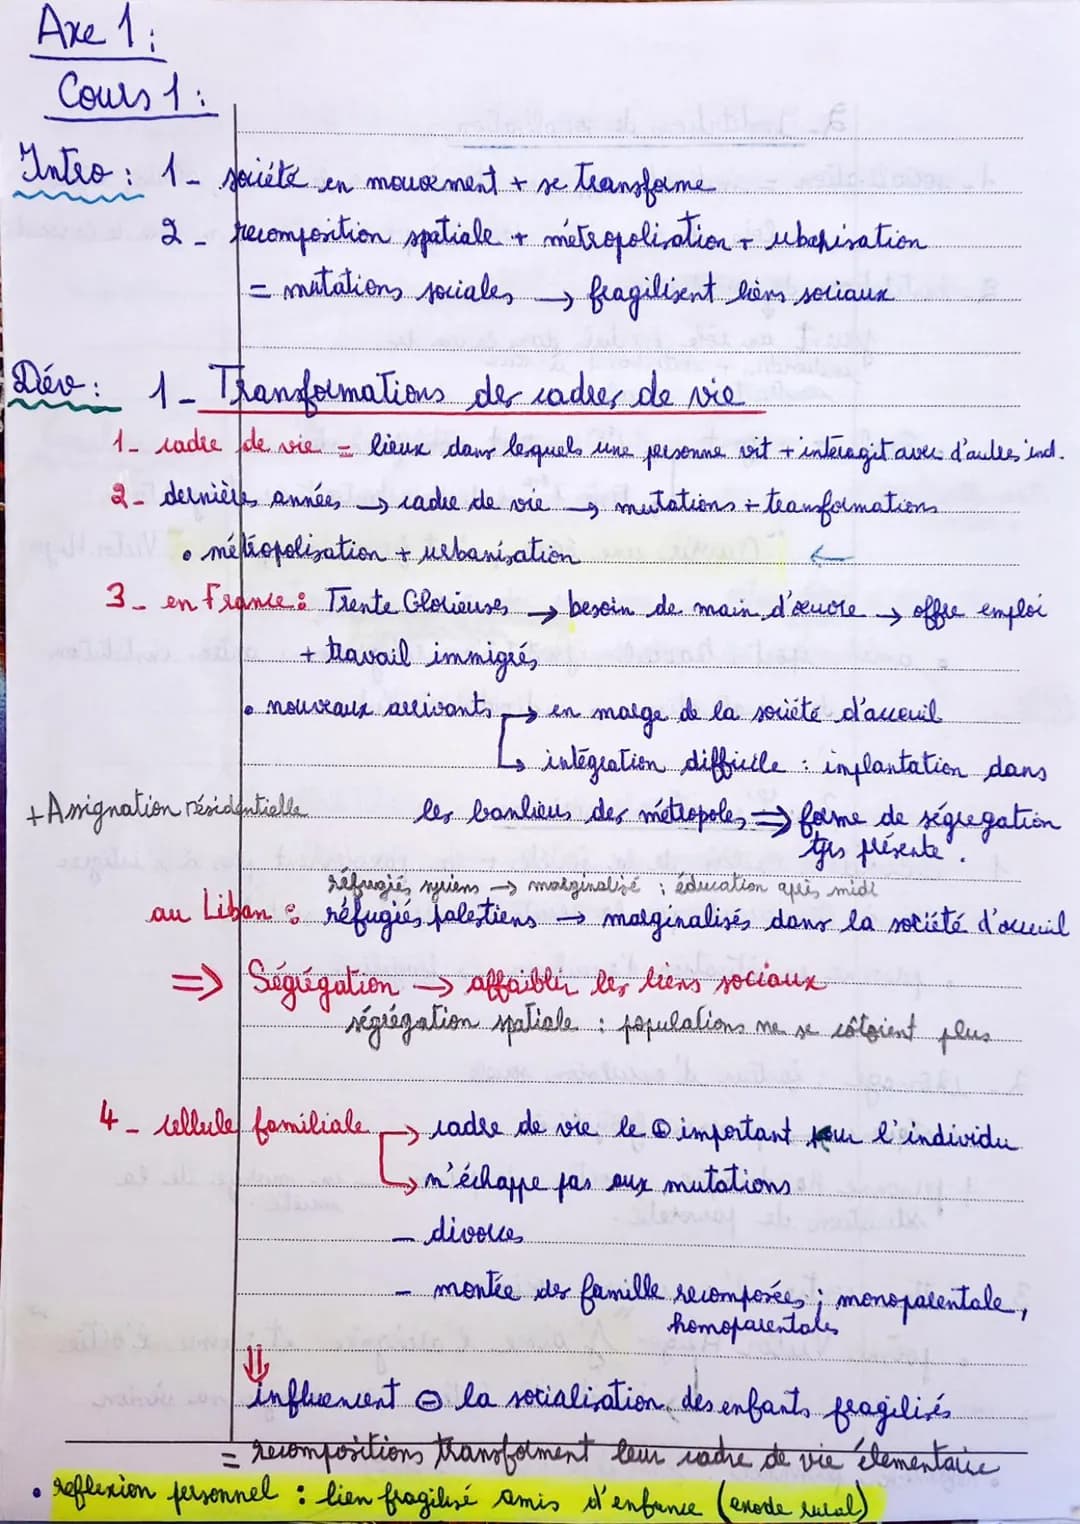 Axe 1 :
Cours 1 :
Intro : 1- société en mouvement + se transforme
2- recomposition spatiale + métropolisation + urbanisation
= mutations sociales → fragilisent liens sociaux
Dév : 1- Transformations des cadres de vie
1- cadre de vie = lieux dans lesquels une personne vit + interagit avec d'autres ind.
2- dernières années → cadre de vie → mutations + transformations
• métropolisation + urbanisation ←
3- en France : Trente Glorieuses → besoin de main d'œuvre → offre emploi
+ travail immigrés
• nouveaux arrivants → en marge de la société d'acceuil
↳ intégration difficile : implantation dans
+ Assignation résidentielle les banlieus des métropoles ⇒ forme de ségregation
tjrs présente.
réfugiés syriens → marginalisé ; éducation après midi
au Liban : réfugiés palestiens → marginalisés dans la société d'accueil
⇒ Ségrégation → affaiblir les liens sociaux
ségrégation spatiale : populations ne se côtoient plus
4- cellule familiale → cadre de vie le ⊕ important pour l'individu
↳ n'échappe pas aux mutations
- divorces
- montée des famille recomposées ; monoparentale,
homoparentales
⇓
influencent ⊖ la socialisation des enfants fragilisés
= recompositions transforment leur cadre de vie élementaire
• reflexion personnel : lien fragilisé amis d'enfance (exode rural)